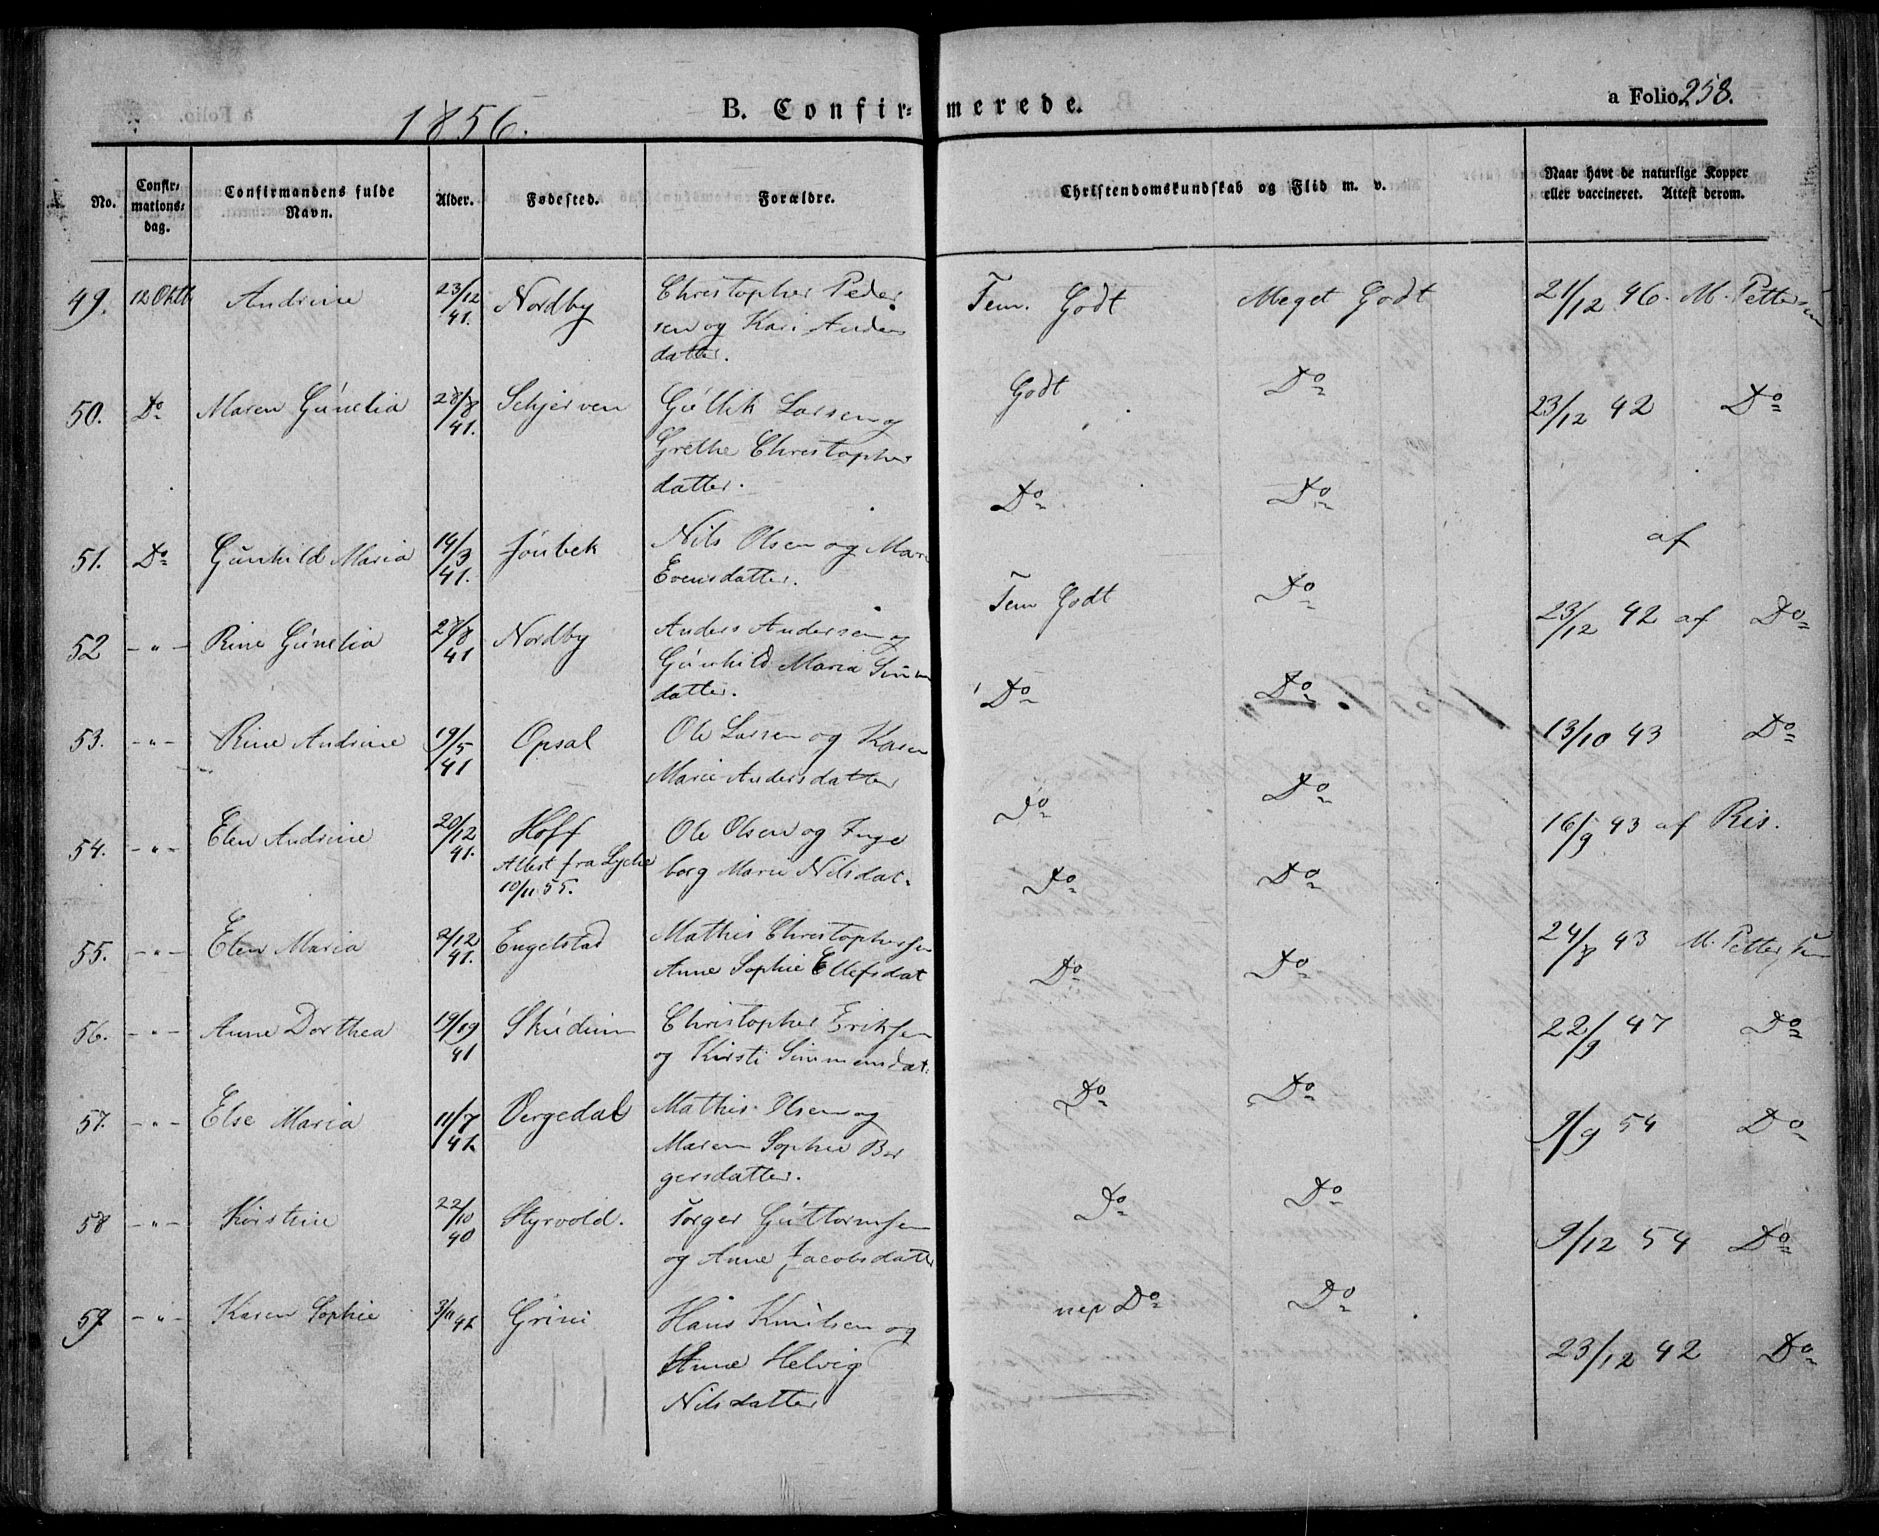 1856. B. Confirmerede. a Folio 258.
No. Confirmationsdag. Confirmandens fulde Navn. Alder. Fødested. Forældre. Christendomskundskab og Flid m. v. Naar havt de naturlige Kopper eller vaccineret. Attest derom.
49. 12 Oktb Andrine 23/12 41. Nordby Christopher Peder Tem. Godt Meget Godt 21/12 46. M. Pettersen
sen og Kari Anders
datter.
50. Do Maren Gunelia 28/8 41. Schjerven Gullik Larsen og Godt Do 23/12 42 Do
Grethe Christopher
datter.
51. Do Gunhild Maria 14/3 41. Nils Olsen og Do Do af
Evensdatter.
52 -"- Rine Gunelia 28/8 41 Nordby Anders Andersen og Tem Godt Do 23/12 42 af Do
Gunhild Maria
datter.
53. -"- Rine Andrine 19/5 41 Opsal Ole Larsen og Karen Do Do 13/10 43 Do
Marie Andersdatter
54. -"- Elen Andrine 20/12 41. Hoff Ole Olsen og Inge Do Do 16/9 43 af Ris.
Attest fra
10/11 55. borg Marie Nilsdat.
55. -"- Elen Maria 2/12 41. Engelstad Mathis Christophersen Do Do 24/8 43 M. Pettersen
Anne Sophie Ellefsdat
56. -"- Anne Dorthea 19/09 41 Skudum Christopher Eriksen Do Do 22/9 47 Do
og Kirsti Simmensdat.
57. -"- Else Maria 11/7 Vergedal Mathis Olsen og Do Do 9/9 54 Do
Maren Sophie Bør
gersdatter.
58 -"- Kirstine 22/10 40 Styrvold. Torger Guttormsen Do Do 9/12 54 Do
og Anne Jacobsdatter
59 -"- Karen Sophie 3/11 Grini Hans Knudsen og nep Do Do 23/12 42 Do
Anne Helvig
Nilsdatter